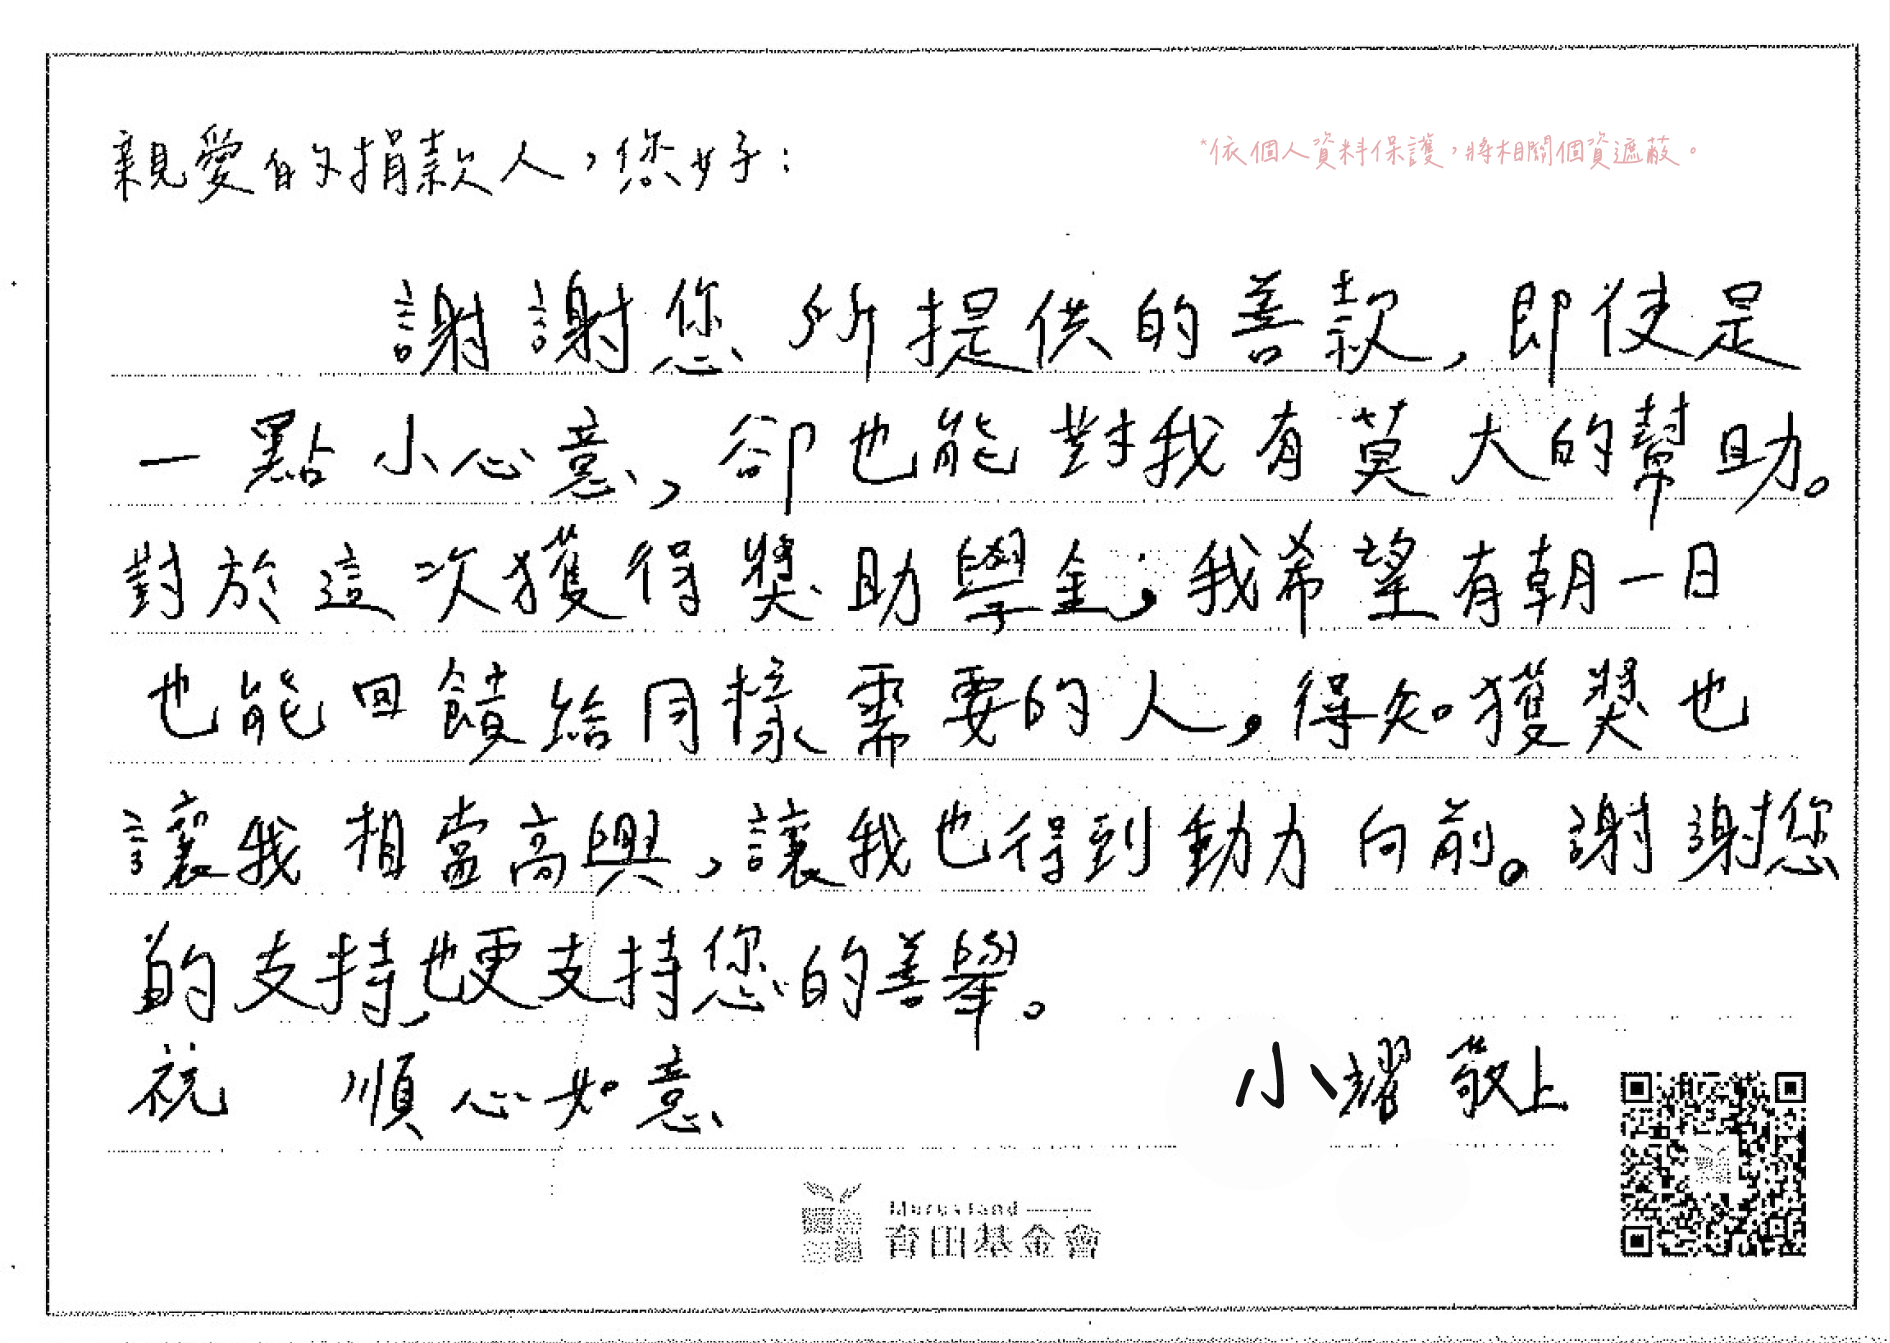 親愛的捐款人，您好：
*依個人資料保護，將相關個資遮蔽。
謝謝您所提供的善款，即使是
一點小心意，卻也能對我有莫大的幫助。
對於這次獲得獎助學金，我希望有朝一日
也能回饋給同樣需要的人，得知獲獎也
讓我相當高興，讓我也得到動力向前。謝謝您
的支持，也更支持您的善舉。
祝 順心如意
小耀 敬上
育田基金會